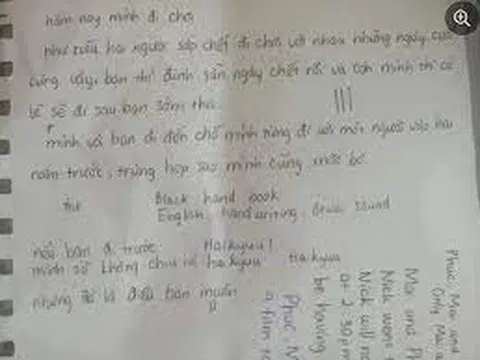 hôm nay mình đi chơi
như kiểu hai người sắp chết đi chơi với nhau những ngày cuối
cùng vậy. bạn thì định sẵn ngày chết rồi và còn mình thì có
lẽ sẽ đi sau bạn sớm thôi.
mình và bạn đi đến chỗ mình từng đi với một người vào hai
năm trước, trùng hợp sao mình cũng mặc bộ
Black hand book
English, handwriting, sound
nếu bạn đi trước Haikyuu!
mình sẽ không chịu haikyuu haikyuu
nhưng đó là điều bạn muốn
Phúc, Mai and
Only Mai
Mai and Ph
Nick went t
Nick will no
at 2:30 pm
be having
Phúc, M
a film